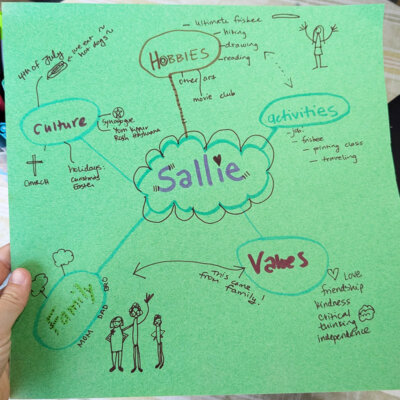 Sallie
HOBBIES
- Ultimate frisbee
- hiking
- drawing
- reading
other arts
movie club
activities
- job
- frisbee
- painting class
- traveling
Values
Love
friendship
kindness
critical
thinking
independence
This came
from family!
Family
MOM
DAD
BRO
Culture
4th of July
we eat
hot dogs
Synagogue
Yom Kippur
Rosh Hashana
CHURCH
holidays:
Christmas
Easter